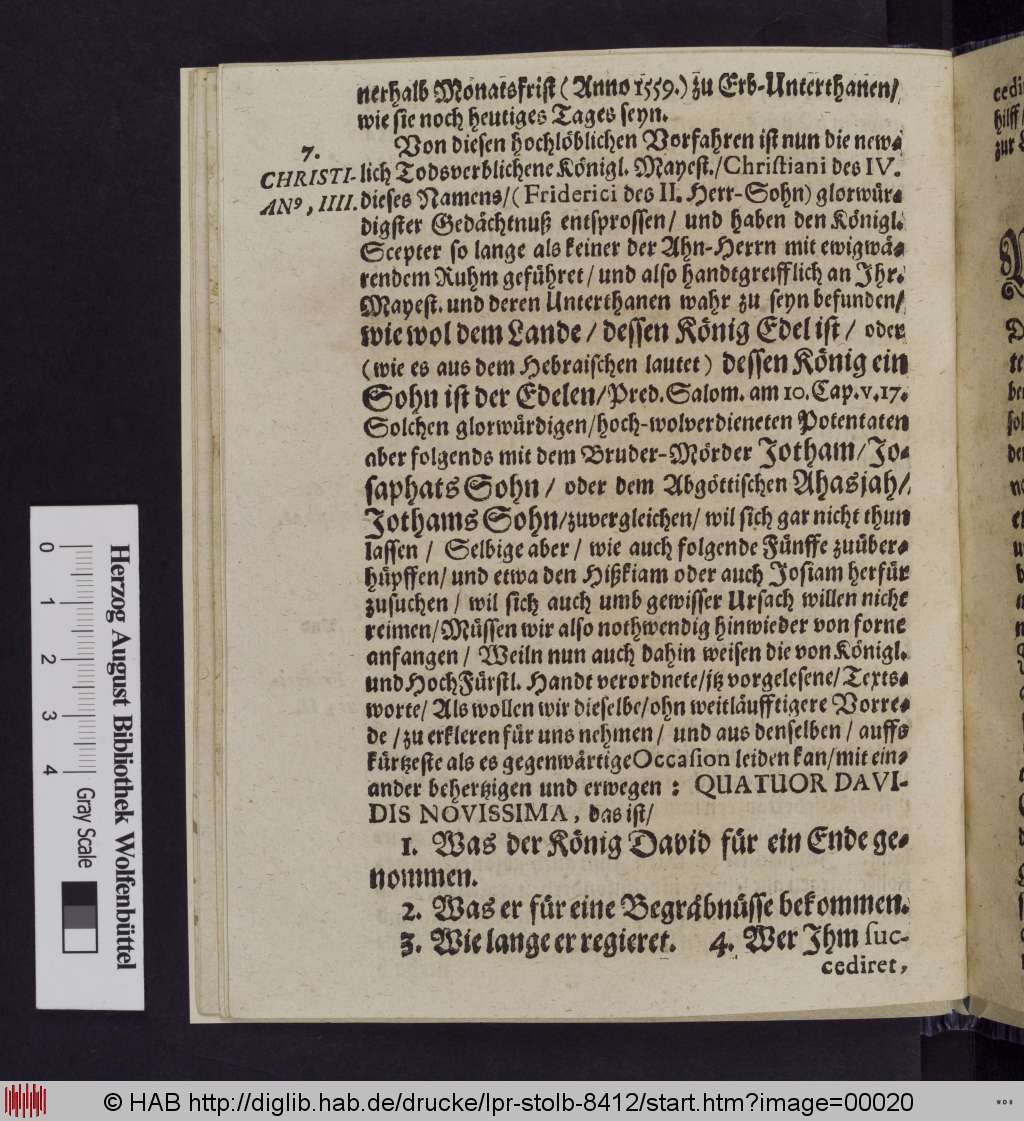 nerhalb Monatsfrist (Anno 1559.) zu Erb-Unterthanen/
wie sie noch heutiges Tages seyn.
7.
CHRISTI-
ANꝰ, IIII.
Von diesen hochlöblichen Vorfahren ist nun die new-
lich Todsverblichene Königl. Mayest./Christiani des IV.
dieses Namens/(Friderici des II. Herr-Sohn) glorwür-
digster Gedächtnuß entsprossen/ und haben den Königl.
Scepter so lange als keiner der Ahn-Herrn mit ewigwä-
rendem Ruhm geführet/ und also handtgreifflich an Ihr.
Mayest. und deren Unterthanen wahr zu seyn befunden/
wie wol dem Lande/ dessen König Edel ist/ oder
(wie es aus dem Hebraischen lautet) dessen König ein
Sohn ist der Edelen/Pred. Salom. am 10. Cap. v. 17.
Solchen glorwürdigen/hoch-wolverdieneten Potentaten
aber folgends mit dem Bruder-Mörder Jotham/Jo-
saphats Sohn/ oder dem Abgöttischen Ahasjah/
Jothams Sohn/zuvergleichen/ wil sich gar nicht thun
lassen/ Selbige aber/ wie auch folgende Fünffe zuüber-
hüpffen/ und etwa den Hißkiam oder auch Josiam herfür
zusuchen/ wil sich auch umb gewisser Ursach willen nicht
reimen/Müssen wir also nothwendig hinwieder von forne
anfangen/ Weiln nun auch dahin weisen die von Königl.
und HochFürstl. Handt verordnete/itz vorgelesene/Texts-
worte/ Als wollen wir dieselbe/ohn weitläufftigere Vorre-
de/zu erkleren für uns nehmen/ und aus denselben/ auffs
kürtzeste als es gegenwärtige Occasion leiden kan/mit ein-
ander behertzigen und erwegen: QUATUOR DAVI-
DIS NOVISSIMA, das ist/
1. Was der König David für ein Ende ge-
nommen.
2. Was er für eine Begräbnüsse bekommen.
3. Wie lange er regieret. 4. Wer Ihm suc-
cediret,
Herzog August Bibliothek Wolfenbüttel
0 1 2 3 4
Gray Scale
© HAB http://diglib.hab.de/drucke/lpr-stolb-8412/start.htm?image=00020